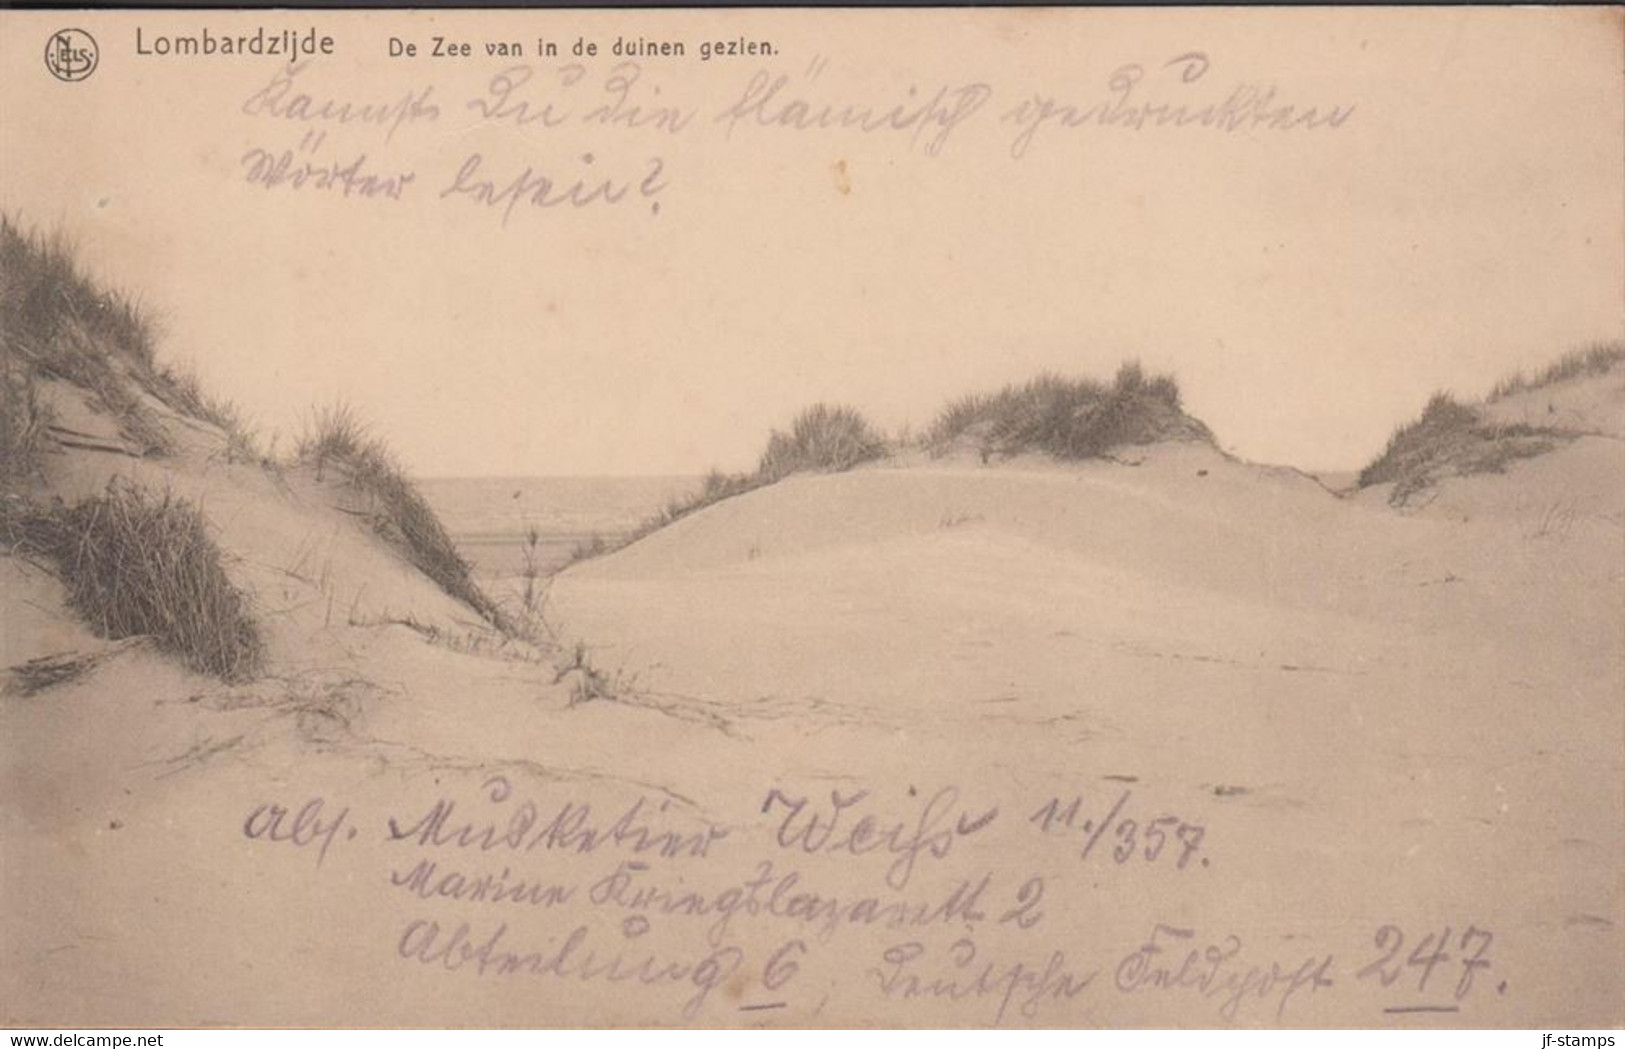 NELS
Lombardzijde De Zee van in de duinen gezien.
Kannst Du die flämisch gedruckten
Wörter lesen?
Abs. Musketier Weihs 11./357.
Marine Kriegslazarett 2
Abteilung 6, Deutsche Feldpost 247.
delcampe.net
jf-stamps